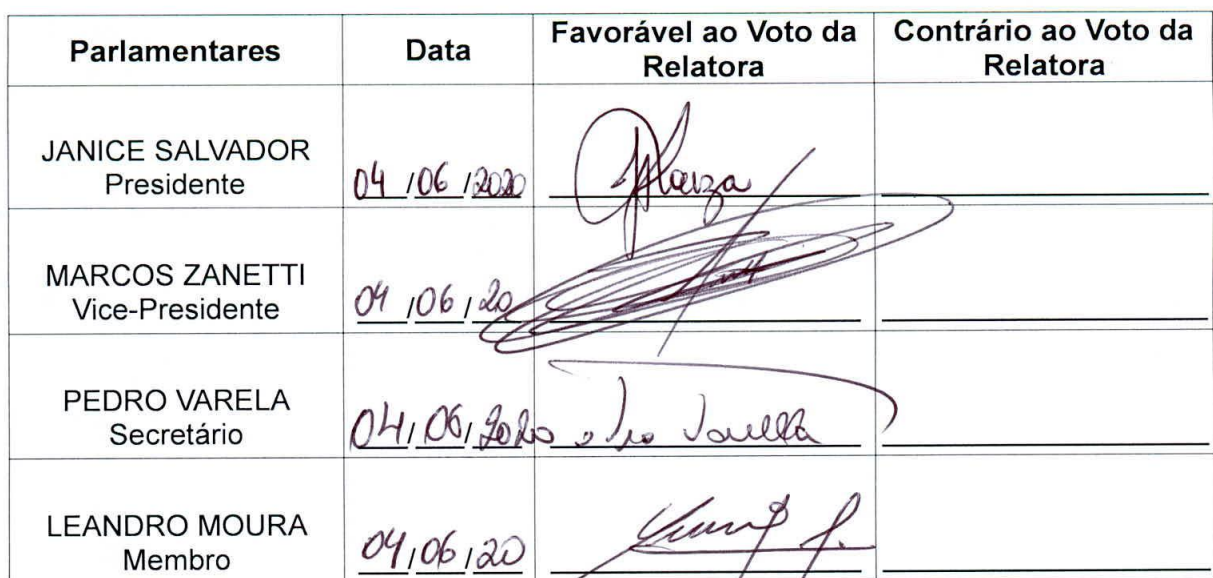 Parlamentares Data Favorável ao Voto da Relatora Contrário ao Voto da Relatora
JANICE SALVADOR
Presidente 04/06/2020
MARCOS ZANETTI
Vice-Presidente 04/06/20
PEDRO VARELA
Secretário 04/06/2020
LEANDRO MOURA
Membro 04/06/20